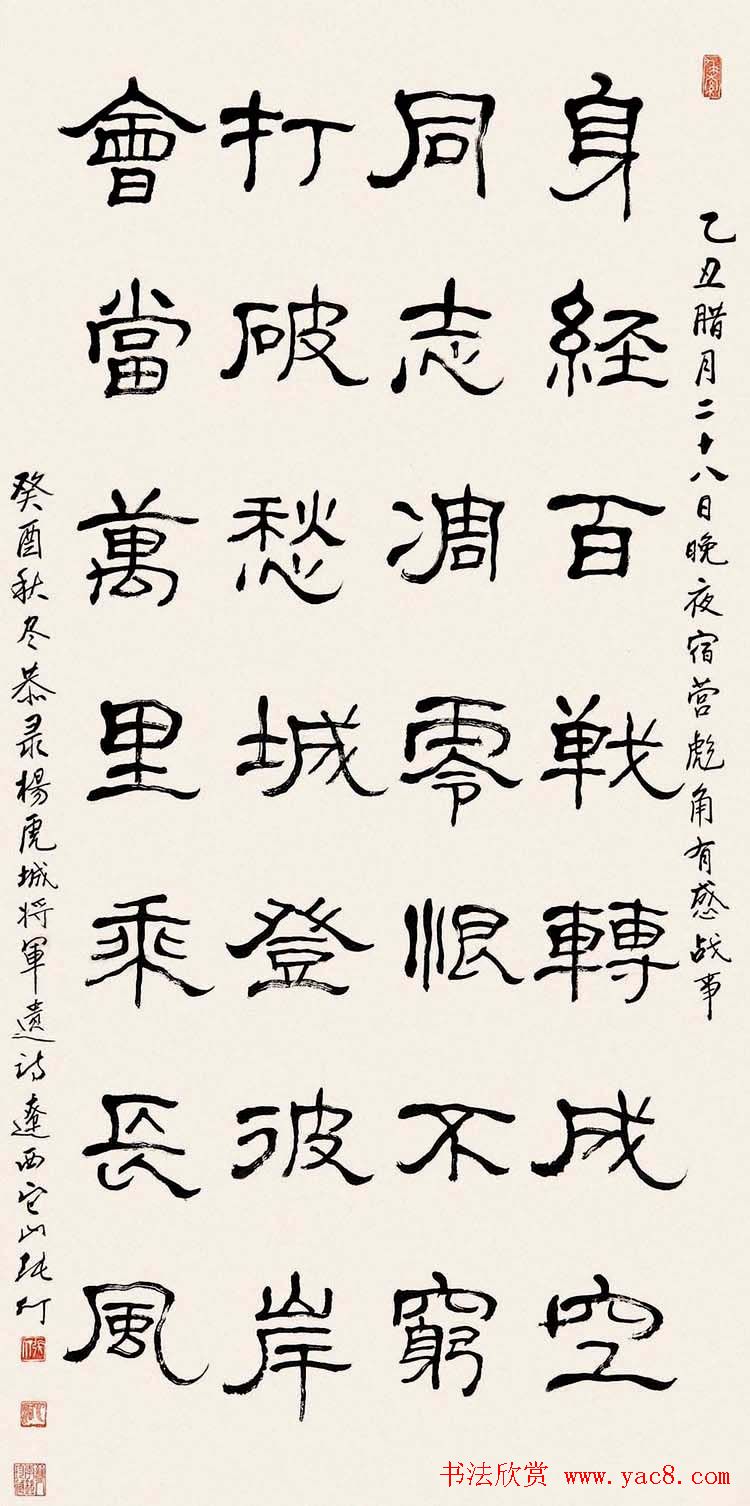 乙丑腊月二十八日晚夜宿营彪角有感战事
身經百戰轉成空
同志凋零恨不窮
打破愁城登彼岸
會當萬里乘長風
癸酉秋冬恭录楊虎城将軍遺诗遼西它山张仃
书法欣赏 www.yac8.com